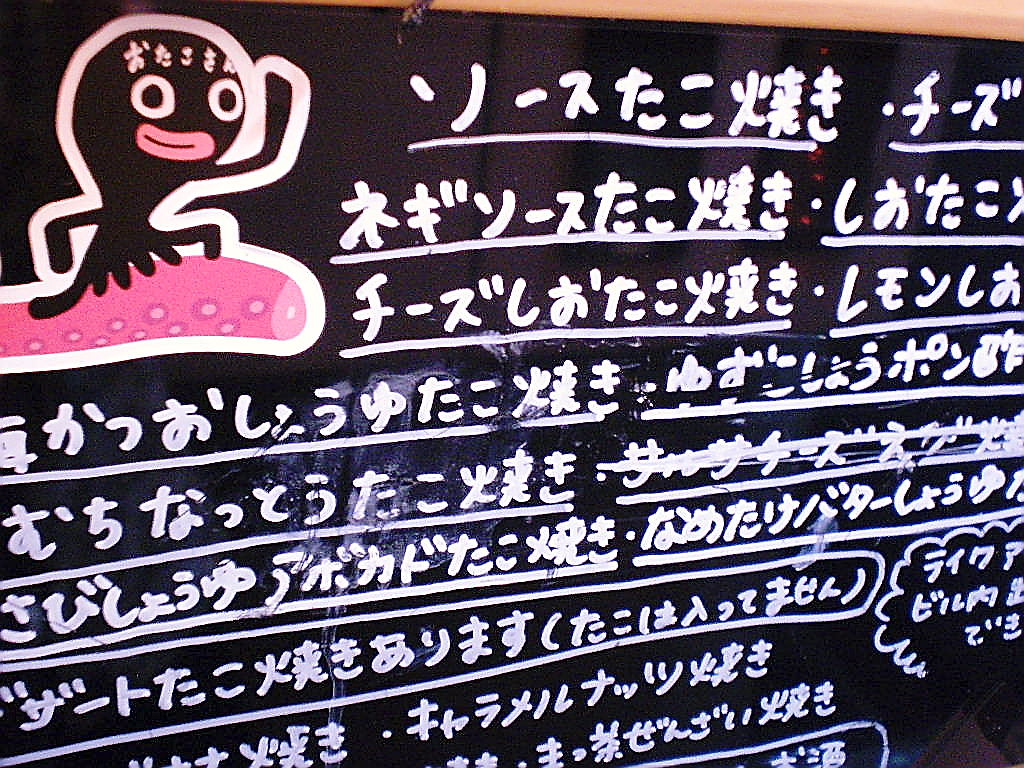 おたこさん
ソースたこ焼き ・チーズ
ネギソースたこ焼き・しおたこ
チーズしおたこ焼き・レモンしお
かつおしょうゆたこ焼き・ゆずこしょうポン酢
むちなっとうたこ焼き・サルサチーズ
さびしょうゆアボカドたこ焼き・なめたけバターしょうゆ
デザートたこ焼きあります(たこは入ってません)
ライクア
ビル内
でき
焼き ・キャラメルナッツ焼き
・まっ茶ぜんざい焼き
お酒